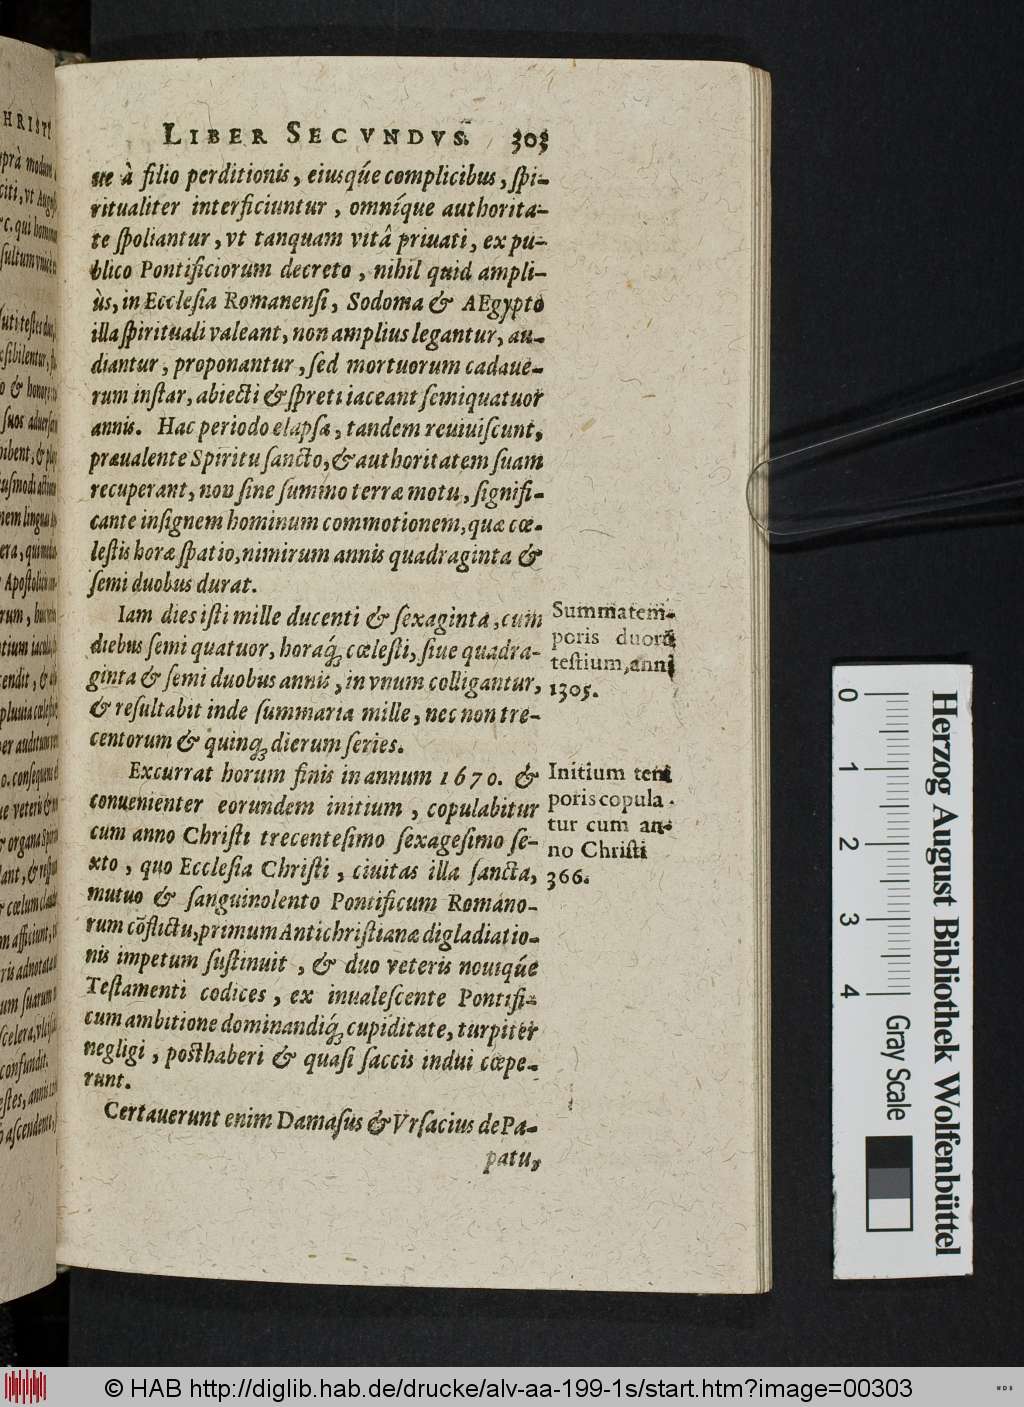 LIBER SECVNDVS. 303
ue à filio perditionis, eiusq́ue complicibus, ſpi-
ritualiter interficiuntur, omníque authorita-
te ſpoliantur, vt tanquam vitâ priuati, ex pu-
blico Pontificiorum decreto, nihil quid ampli-
ùs, in Eccleſia Romanenſi, Sodoma & AEgypto
illa ſpirituali valeant, non amplius legantur, au-
diantur, proponantur, ſed mortuorum cadaue-
rum inſtar, abiecti & ſpreti iaceant ſemiquatuor
annis. Hac periodo elapſa, tandem reuiuiſcunt,
præualente Spiritu ſancto, & authoritatem ſuam
recuperant, non ſine ſummo terræ motu, ſignifi-
cante inſignem hominum commotionem, quæ cœ-
leſtis horæ ſpatio, nimirum annis quadraginta &
ſemi duobus durat.
Iam dies iſti mille ducenti & ſexaginta, cum
diebus ſemi quatuor, horaq́; cœleſti, ſiue quadra-
ginta & ſemi duobus annis, in vnum colligantur,
& reſultabit inde ſummaria mille, nec non tre-
centorum & quinq; dierum ſeries.
Summa tem-
poris duorũ
teſtium, anni
1305.
Excurrat horum finis in annum 1670. &
conuenienter eorundem initium, copulabitur
cum anno Chriſti trecenteſimo ſexageſimo ſe-
xto, quo Eccleſia Chriſti, ciuitas illa ſancta,
mutuo & ſanguinolento Pontificum Romano-
rum cõflictu, primum Antichriſtianæ digladiatio-
nis impetum ſuſtinuit, & duo veteris nouiq́ue
Teſtamenti codices, ex inualeſcente Pontifi-
cum ambitione dominandiq́; cupiditate, turpiter
negligi, poſthaberi & quaſi ſaccis indui cœpe-
runt.
Initium tem
poris copula-
tur cum an-
no Chriſti
366.
Certauerunt enim Damaſus & Vrſacius de Pa-
patu,
0 1 2 3 4
Gray Scale
Herzog August Bibliothek Wolfenbüttel
© HAB http://diglib.hab.de/drucke/alv-aa-199-1s/start.htm?image=00303